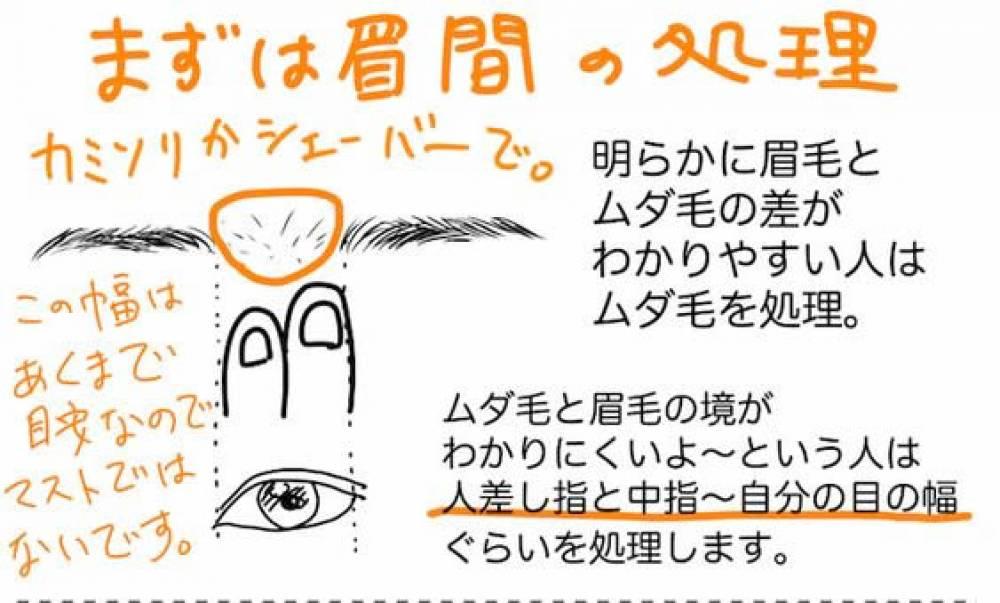 まずは眉間の処理
カミソリかシェーバーで。
明らかに眉毛と
ムダ毛の差が
わかりやすい人は
ムダ毛を処理。
この幅は
あくまで
目安なので
マストでは
ないです。
ムダ毛と眉毛の境が
わかりにくいよ〜という人は
人差し指と中指〜自分の目の幅
ぐらいを処理します。